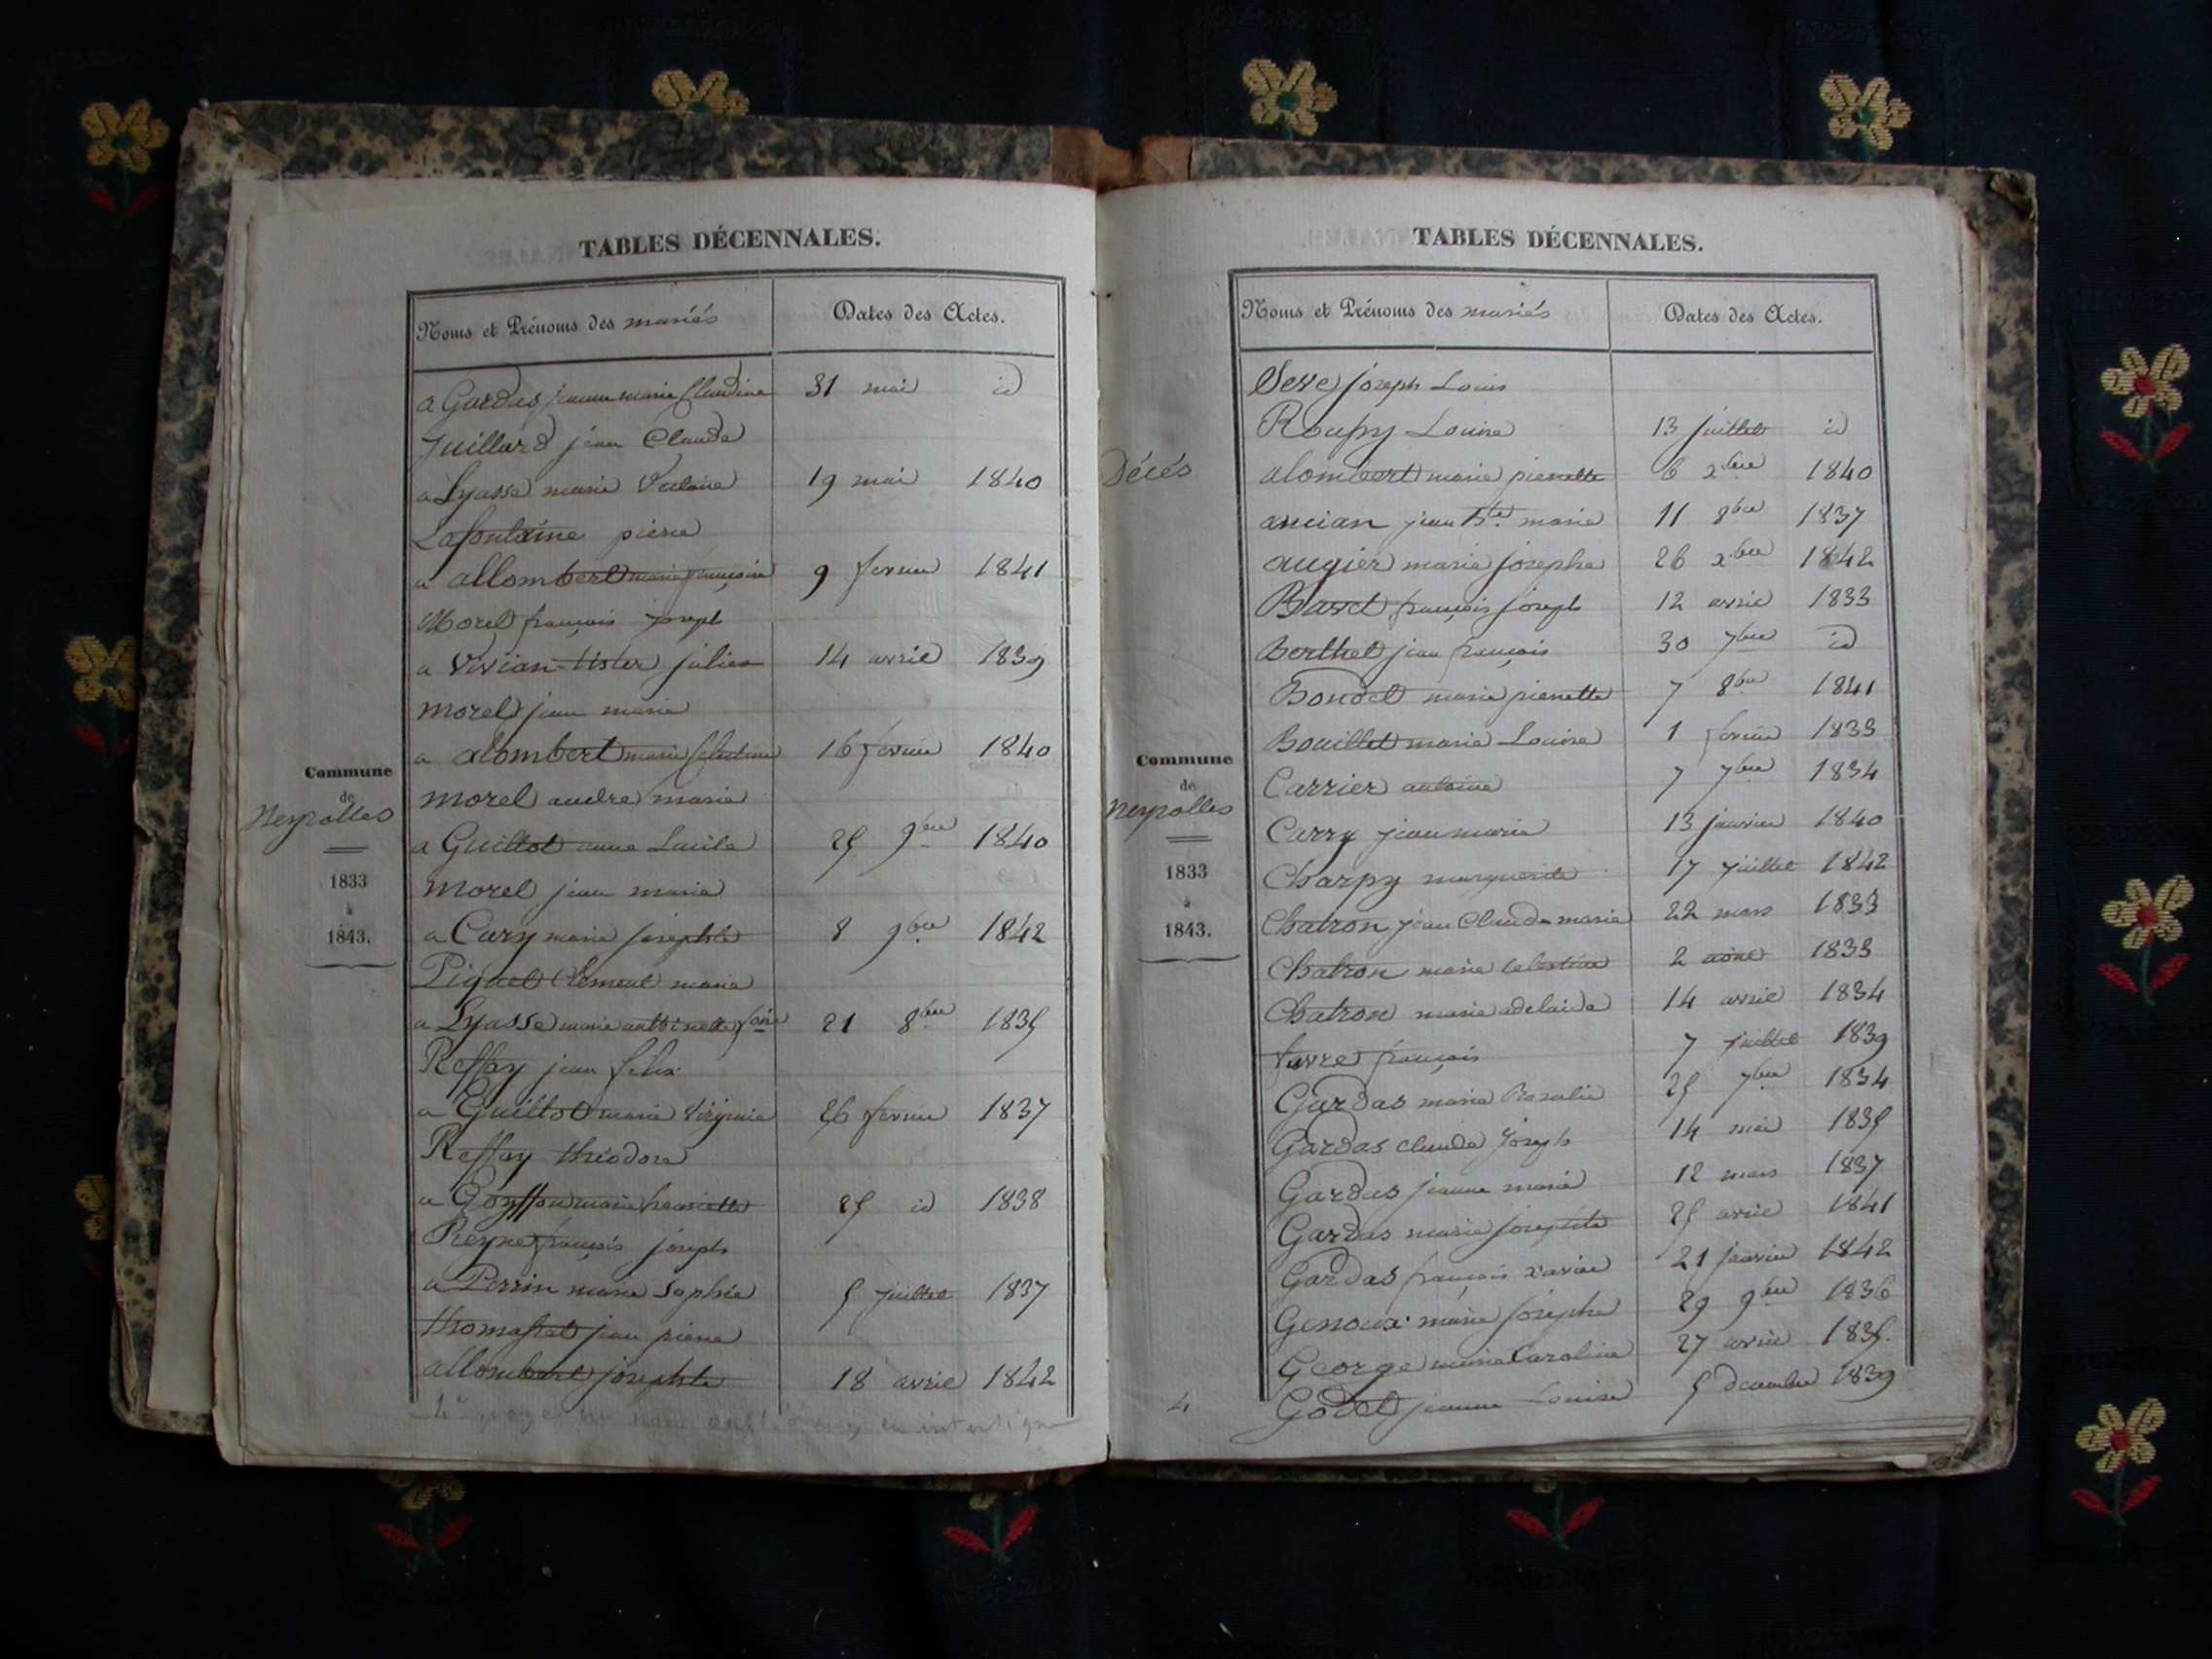 TABLES DÉCENNALES.
Noms et Prénoms des mariés Dates des Actes.
a Gardas jeanne marie Claudine 31 mai id
Juillard jean Claude
a Lyasse marie 19 mai 1840
Lafontaine pierre
a allombert marie françoise 9 fevrier 1841
Morel françois joseph
a Vivian-tister julie 14 avril 1839
morel jean marie
a alombert marie Celestine 16 fevrier 1840
morel andre marie
a Guillot anne Lucile 25 9bre 1840
morel jean marie
a Cary marie josephte 8 9bre 1842
Piquet Clement marie
a Lyasse marie anthoinette foise 21 8bre 1835
Reffay jean felix
a Guillot marie Virginie 26 fevrier 1837
Reffay théodore
a Goyffon marie henriette 25 id 1838
Reyne françois joseph
a Perrin marie Sophie 5 juillet 1837
thomasset jean pierre
allombert josephte 18 avril 1842
Commune
de
Neyrolles
1833
à
1843.
TABLES DÉCENNALES.
Noms et Prénoms des mariés Dates des Actes.
Seve joseph Louis
Roupy Louise 13 juillet id
Décés alombert marie pierrette 6 xbre 1840
ancian jean Bte marie 11 8bre 1837
augier marie josephe 26 xbre 1842
françois joseph 12 avril 1833
Berthet jean françois 30 7bre id
Bondet marie pierrette 7 8bre 1841
Bouillet marie Louise 1 fevrier 1833
Carrier antoine 7 7bre 1834
Carry jean marie 13 janvier 1840
Charpy marguerite 17 juillet 1842
Chatron jean Claude marie 22 mars 1833
Chatron marie Celestine 2 aout 1833
Chatron marie adelaide 14 avril 1834
favre françois 7 juillet 1839
Gardas marie Rosalie 25 7bre 1834
Gardas claude joseph 14 mai 1835
Gardas jeanne marie 12 mars 1837
Gardas marie josephte 25 avril 1841
Gardas françois xavier 21 janvier 1842
Genoux marie josephe 29 9bre 1836
George marie Caroline 27 avril 1835.
Godet jeanne Louise 5 decembre 1839
Commune
de
Neyrolles
1833
à
1843.
4